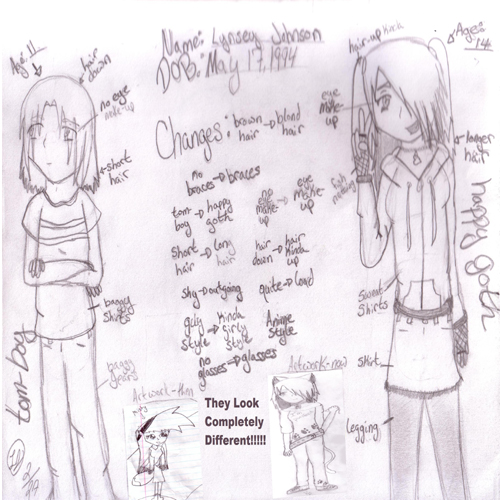 Name: Lynsey Johnson
DOB: May 17, 1994
Age: 11
hair down
no eye make-up
short hair
baggy shirts
baggy jeans
tom-boy
Changes:
brown hair → blond hair
no braces → braces
tom boy → happy goth
no eye make-up → eye make-up
short hair → long hair
hair down → hair kinda up
shy → outgoing
quite → loud
guy style → kinda girly style
Anime style
no glasses → glasses
Artwork-then
Artwork-new
They Look
Completely
Different!!!!!
Age: 14
hair-up kinda
eye make-up
longer hair
happy goth
sweat shirts
skirt
legging